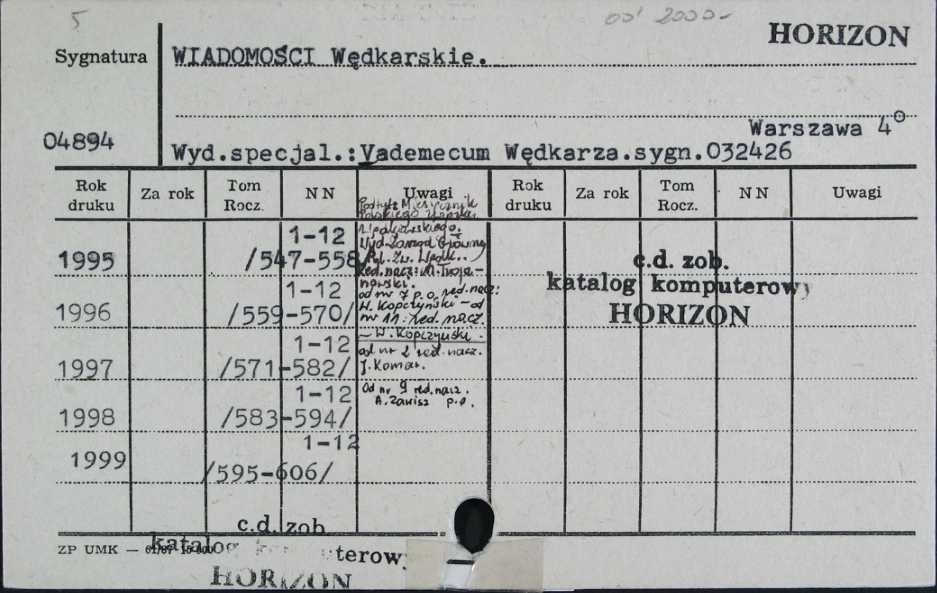 5
od 2000-
HORIZON
Sygnatura
WIADOMOŚCI Wędkarskie.
04894
Warszawa 4°
Wyd.specjal.:Vademecum Wędkarza.sygn.032426
Rok druku Za rok Tom Rocz. N N Uwagi Rok druku Za rok Tom Rocz. N N Uwagi
Podtyt: Miesięcznik
Polskiego Związku
Wędkarskiego.
Wyd. Zarząd Główny
Pol. Zw. Wędk..
Red. nacz:
od nr 7 p.o. red. nacz:
W. Kopczyński - od
nr 11: red. nacz.
- W. Kopczyński.
od nr 2 red. nacz.
J. Komar.
Od nr 9 red. nacz.
A. Zawisz p.o.
1995 1-12
/547-558/
1996 1-12
/559-570/
1997 1-12
/571-582/
1998 1-12
/583-594/
1999 1-12
/595-606/
c.d. zob.
katalog komputerowy
HORIZON
c.d. zob
katalog terowy
HORIZON
ZP UMK —